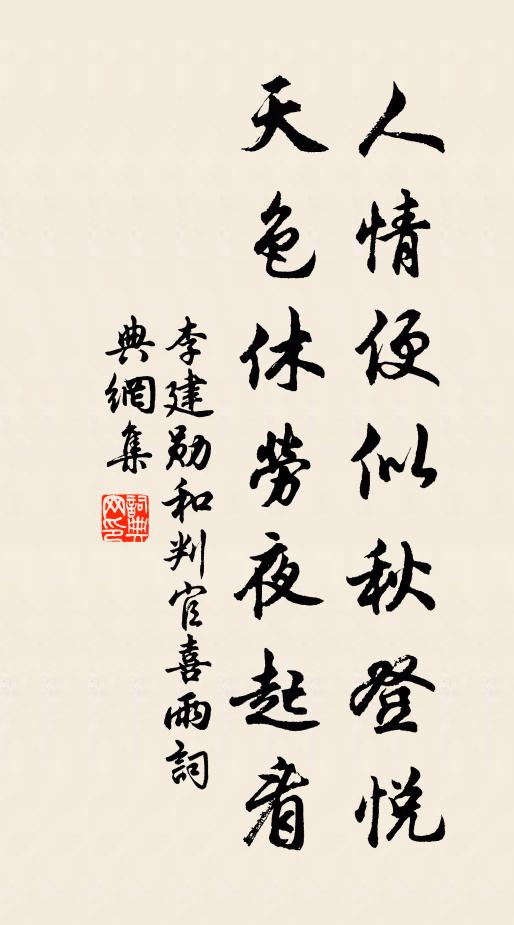 人情便似秋登悦
天色休勞夜起看
李建勛和判官喜雨詞
典網集
詞典網印